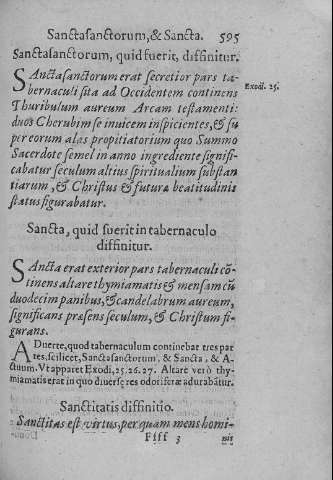 Sanctasanctorum, & Sancta. 595
Sanctasanctorum, quid fuerit, diffinitur.
SAnctasanctorum erat secretior pars ta-
bernaculi sita ad Occidentem continens
Exod. 25.
Thuribulum aureum Arcam testamenti:
duos Cherubim se invicem inspicientes, & su
per eorum alas propitiatorium quo Summo
Sacerdote semel in anno ingrediente signifi-
cabatur seculum altius spiritualium substan
tiarum, & Christus & futuræ beatitudinis
status figurabatur.
Sancta, quid fuerit in tabernaculo
diffinitur.
SAncta erat exterior pars tabernaculi cō-
tinens altare thymiamatis & mensam cū
duodecim panibus, & candelabrum aureum,
significans præsens seculum, & Christum fi-
gurans.
ADuerte, quod tabernaculum continebat tres par
tes, scilicet, Sanctasanctorum, & Sancta, & A-
ctuum. Vt apparet Exodi, 25. 26. 27. Altare verò thy-
miamatis erat in quo diuersæ res odoriferæ adurabātur.
Sanctitatis diffinitio.
Sanctitas est virtus, per quam mens homi-
Ffff 3 nis